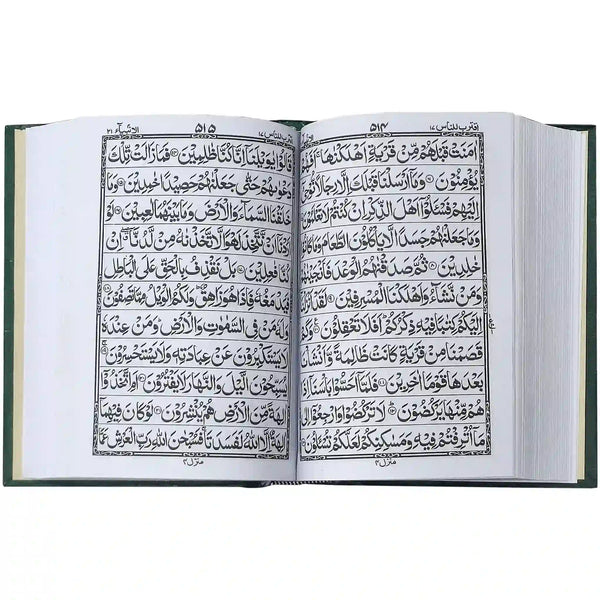 اقترب للناس ١٧
٥١٤
اٰمَنَتْ قَبْلَهُمْ مِّنْ قَرْيَةٍ اَهْلَكْنٰهَا ۚ
يُؤْمِنُوْنَ ۝٦ وَمَاۤ اَرْسَلْنَا قَبْلَكَ اِلَّا رِجَالًا
اِلَيْهِمْ فَسْـَٔلُوْۤا اَهْلَ الذِّكْرِ اِنْ كُنْتُمْ لَا تَعْلَمُوْنَ
وَمَا جَعَلْنٰهُمْ جَسَدًا لَّا يَاْكُلُوْنَ الطَّعَامَ وَمَا
خٰلِدِيْنَ ۝٨ ثُمَّ صَدَقْنٰهُمُ الْوَعْدَ فَاَنْجَيْنٰهُمْ
وَمَنْ نَّشَآءُ وَاَهْلَكْنَا الْمُسْرِفِيْنَ ۝٩ لَقَدْ اَنْزَلْنَاۤ
اِلَيْكُمْ كِتٰبًا فِيْهِ ذِكْرُكُمْ ؕ اَفَلَا تَعْقِلُوْنَ ۝١٠ وَكَمْ
قَصَمْنَا مِنْ قَرْيَةٍ كَانَتْ ظَالِمَةً وَّاَنْشَاْنَا
بَعْدَهَا قَوْمًا اٰخَرِيْنَ ۝١١ فَلَمَّاۤ اَحَسُّوْا بَاْسَنَاۤ اِذَا
هُمْ مِّنْهَا يَرْكُضُوْنَ ۝١٢ لَا تَرْكُضُوْا وَارْجِعُوْۤا اِلٰى
مَاۤ اُتْرِفْتُمْ فِيْهِ وَمَسٰكِنِكُمْ لَعَلَّكُمْ تُسْـَٔلُوْنَ
منزل ٤
اقترب للناس ١٧
٥١٥
الانبيآء ٢١
قَالُوْا يٰوَيْلَنَاۤ اِنَّا كُنَّا ظٰلِمِيْنَ ۝١٤ فَمَا زَالَتْ تِّلْكَ
دَعْوٰىهُمْ حَتّٰى جَعَلْنٰهُمْ حَصِيْدًا خٰمِدِيْنَ ۝١٥ وَمَا
خَلَقْنَا السَّمَآءَ وَالْاَرْضَ وَمَا بَيْنَهُمَا لٰعِبِيْنَ ۝١٦ لَوْ
اَرَدْنَاۤ اَنْ نَّتَّخِذَ لَهْوًا لَّاتَّخَذْنٰهُ مِنْ لَّدُنَّاۤ ۖ اِنْ
كُنَّا فٰعِلِيْنَ ۝١٧ بَلْ نَقْذِفُ بِالْحَقِّ عَلَى الْبَاطِلِ
فَيَدْمَغُهٗ فَاِذَا هُوَ زَاهِقٌ ؕ وَلَكُمُ الْوَيْلُ مِمَّا تَصِفُوْنَ ۝١٨
وَلَهٗ مَنْ فِى السَّمٰوٰتِ وَالْاَرْضِ ؕ وَمَنْ عِنْدَهٗ
لَا يَسْتَكْبِرُوْنَ عَنْ عِبَادَتِهٖ وَلَا يَسْتَحْسِرُوْنَ ۝١٩
يُسَبِّحُوْنَ الَّيْلَ وَالنَّهَارَ لَا يَفْتُرُوْنَ ۝٢٠ اَمِ اتَّخَذُوْۤا
اٰلِهَةً مِّنَ الْاَرْضِ هُمْ يُنْشِرُوْنَ ۝٢١ لَوْ كَانَ فِيْهِمَاۤ
اٰلِهَةٌ اِلَّا اللّٰهُ لَفَسَدَتَا ۚ فَسُبْحٰنَ اللّٰهِ رَبِّ الْعَرْشِ عَمَّا
منزل ٤